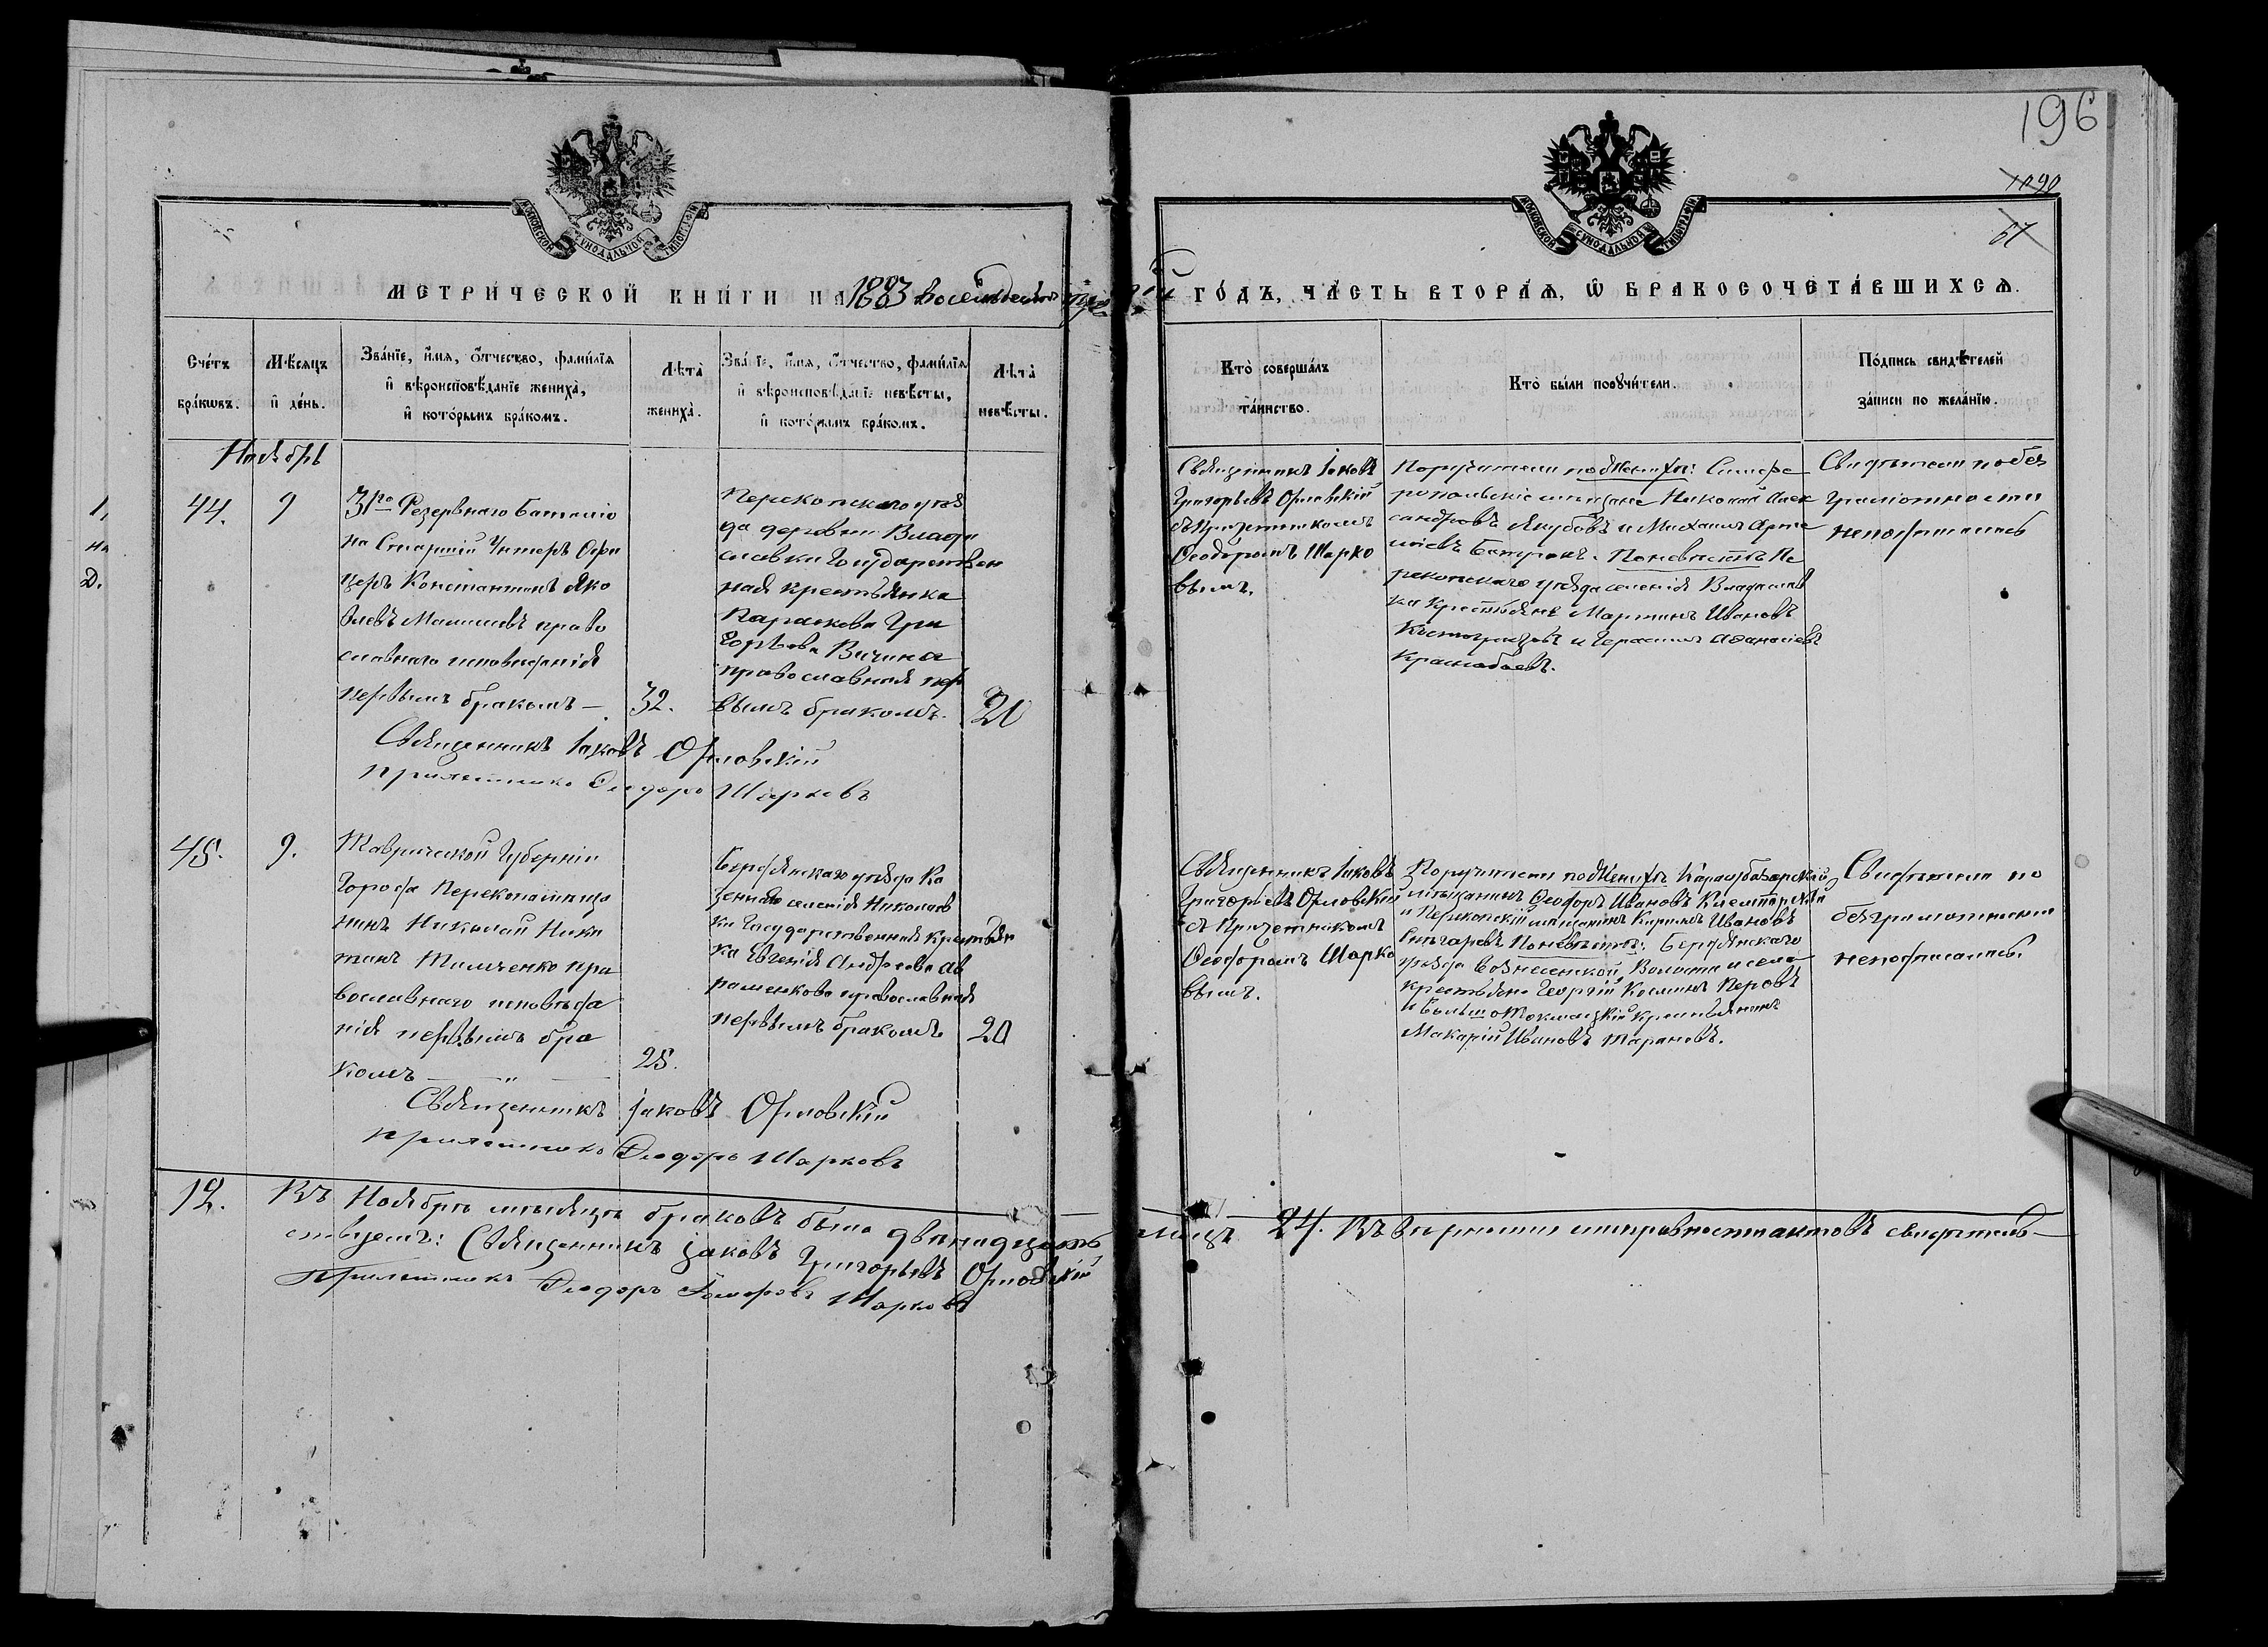 196
1090
61
МОСКОВСКОЙ СУНОДАЛЬНОЙ ТИПОГРАФІИ
МОСКОВСКОЙ СУНОДАЛЬНОЙ ТИПОГРАФІИ
МЕТРИЧЕСКОЙ КНИГИ НА 1883 восемьдесятъ
ГОДЪ, ЧАСТЬ ВТОРАЯ, Ѡ БРАКОСОЧЕТАВШИХСЯ.
Счетъ браковъ.
Мѣсяцъ и день.
Званіе, имя, отчество, фамилія
и вѣроисповѣданіе жениха,
и которымъ бракомъ.
Лѣта жениха.
Званіе, имя, отчество, фамилія
и вѣроисповѣданіе невѣсты,
и которымъ бракомъ.
Лѣта невѣсты.
Кто совершалъ
таинство.
Кто были поручители.
Подпись свидѣтелей
записи по желанію.
Ноябрь
44.
9
31го Резервнаго баталіо
на Старшій Унтеръ Офи
церъ Константинъ Яко
влевъ право
славнаго исповѣданія
первымъ бракомъ —
32.
Перекопскаго уѣз
да деревни Влади
славки Государствен
ная крестьянка
Параскева Гри
горьева Вичина
православная пер
вымъ бракомъ.
20
Священникъ Іаковъ
Григорьевъ Орловскій
съ Причетникомъ
Ѳеодоромъ Шарко
вымъ.
Поручители по женихѣ: Симфе
ропольскіе мѣщане Николай Алек
сандровъ Якубовъ и Михаилъ Арте
По невѣстѣ Пе
рекопскаго уѣзда селенія Владислав
ки Крестьяне Мартинъ Ивановъ
и Герасимъ Аѳанасіевъ
Свидѣтели по без
грамотности
неподписались
Священникъ Іаковъ Орловскій
Причетникъ Ѳеодоръ Шарковъ
45.
9.
Таврической Губерніи
Города Перекопа мѣща
нинъ Николай Ники
тинъ Тимченко пра
вославнаго исповѣда
нія первымъ бра
комъ — „ —
25.
Бердянскаго уѣзда Ка
зеннаго селенія Николаев
ки Государственная Крестьян
ка Евгенія Андреева Ав
раменкова православная
первымъ бракомъ
20
Священникъ Іаковъ
Григорьевъ Орловскій
съ Причетникомъ
Ѳеодоромъ Шарко
вымъ.
Поручители по женихѣ Карасубазарскій
мѣщанинъ Ѳеодоръ Ивановъ
и Перекопскій мѣщанинъ Ивановъ
По невѣстѣ: Бердянскаго
уѣзда Вознесенской Волости и села
крестьяне Георгій Косминъ Перовъ
и Больше Токмацкій крестьянинъ
Макарій Ивановъ Тарановъ.
Свидѣтели по
безграмотности
неподписались.
Священникъ Іаковъ Орловскій
Причетникъ Ѳеодоръ Шарковъ
12.
Въ Ноябрѣ мѣсяцѣ браковъ было двѣнадцать
лицъ 24. Въ вѣрности и исправности актовъ свидѣтель—
ствуемъ: Священникъ Іаковъ Григорьевъ Орловскій
Причетникъ Ѳеодоръ Шарковъ